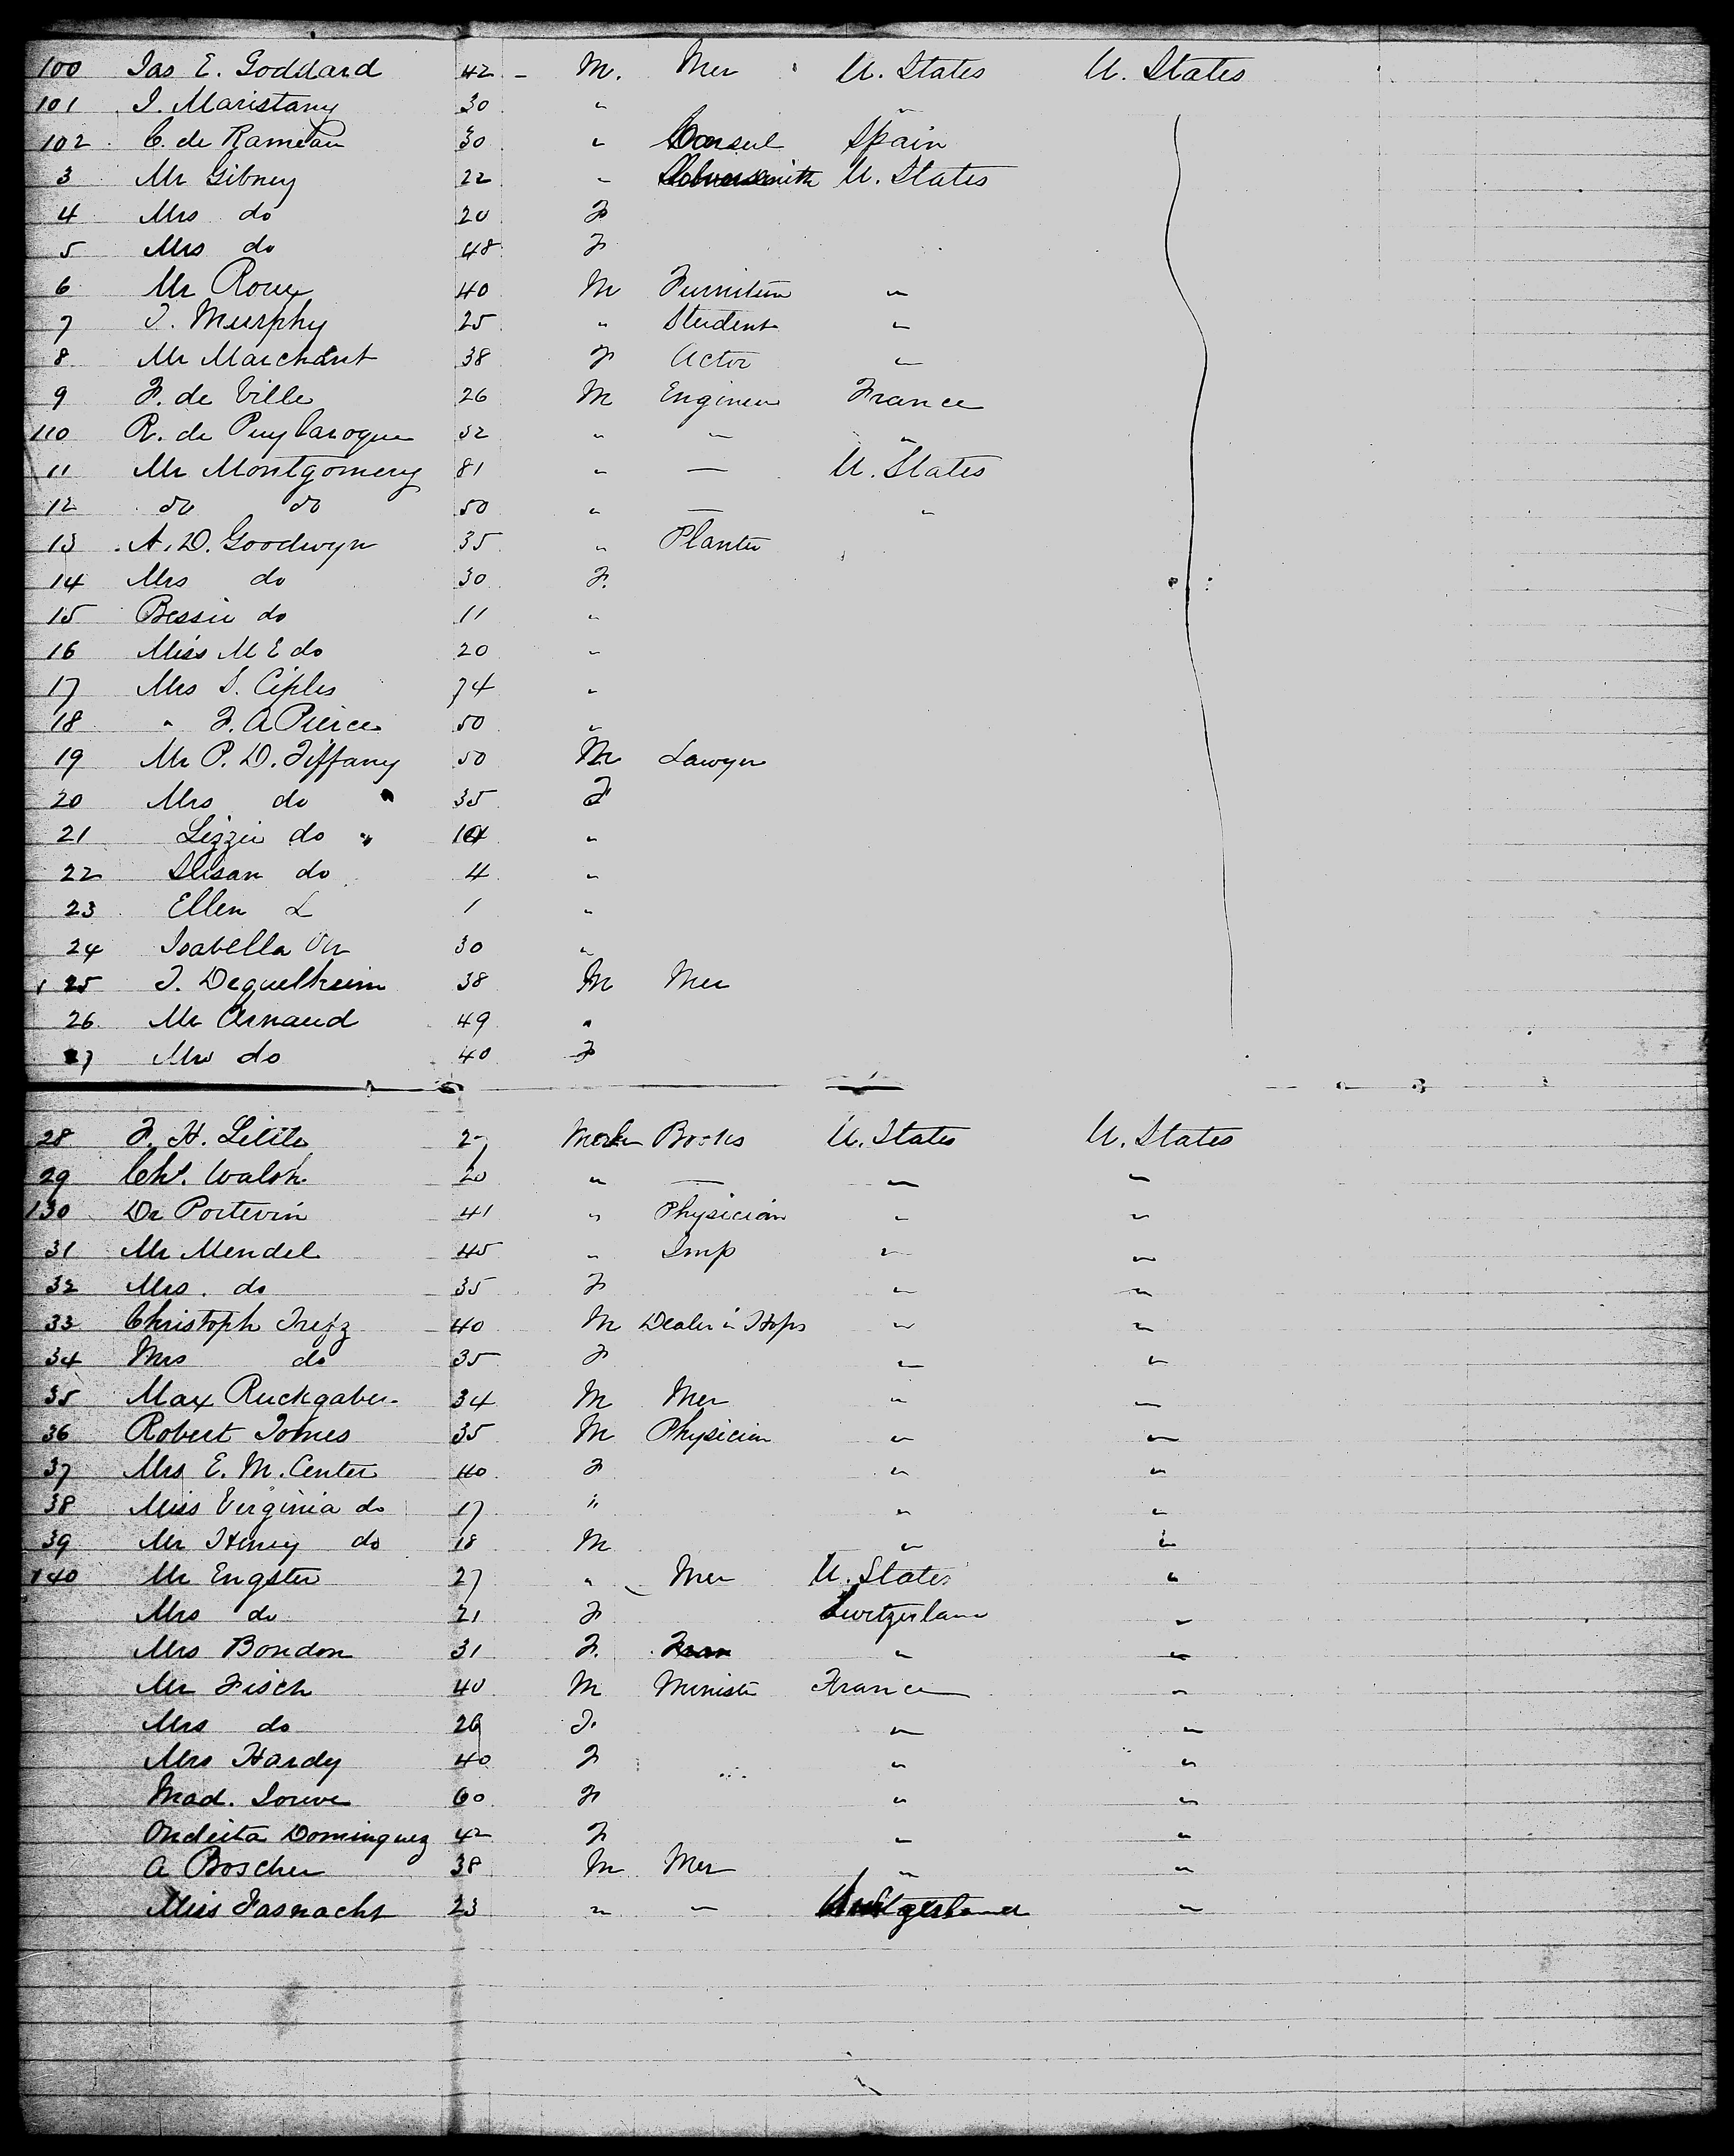 100 Jas E. Goddard 42 - M. Mer U. States U. States
101 J. Maristany 30 " "
102 C. de Rameau 30 " Consul Spain
3 Mr Gibney 22 " U. States
4 Mrs do 20 F
5 Mrs do 48 F
6 Mr Roux 40 M Furniture "
7 J. Murphy 25 " Student "
8 Mr Marchant 38 F Actor "
9 F. de Ville 26 M Engineer France
110 R. de 32 " " "
11 Mr Montgomery 81 " — U. States
12 do do 50 " — "
13 A. D. Goodwyn 35 " Planter
14 Mrs do 30 F.
15 Bessie do 11 "
16 Miss M E do 20 "
17 Mrs S. Ciples 74 "
18 " F. A Pierce 50 "
19 Mr P. D. Tiffany 50 M Lawyer
20 Mrs do 35 F
21 Lizzie do " "
22 Susan do 4 "
23 Ellen L 1 "
24 Isabella Orr 30 "
125 J. 38 M Mer
26 Mr Arnaud 49 "
27 Mrs do 40 F
28 F. H. Little 27 Books U. States U. States
29 Chs. Walsh 20 " — " "
130 Dr Portevin 41 " Physician " "
31 Mr Mendel 45 " Imp " "
32 Mrs. do 35 F " "
33 Christoph Trefz 40 M Dealer in Hops " "
34 Mrs do 35 F " "
35 Max Ruckgaber 34 M Mer " "
36 Robert Tomes 35 M Physician " "
37 Mrs E. M. Center 40 F " "
38 Miss Verginia do 17 " " "
39 Mr Henry do 18 M " "
140 Mr Engster 27 " Mer U. States "
Mrs do 21 F Switzerland "
Mrs Bondon 31 F. " "
Mr Fisch 40 M Ministr France "
Mrs do 26 F. " "
Mrs Hardy 40 F " "
Mad. Louve 60 F " "
Dominguez 42 F " "
A Boscher 38 M Mer " "
Miss Fasnacht 23 " " Switzerland "